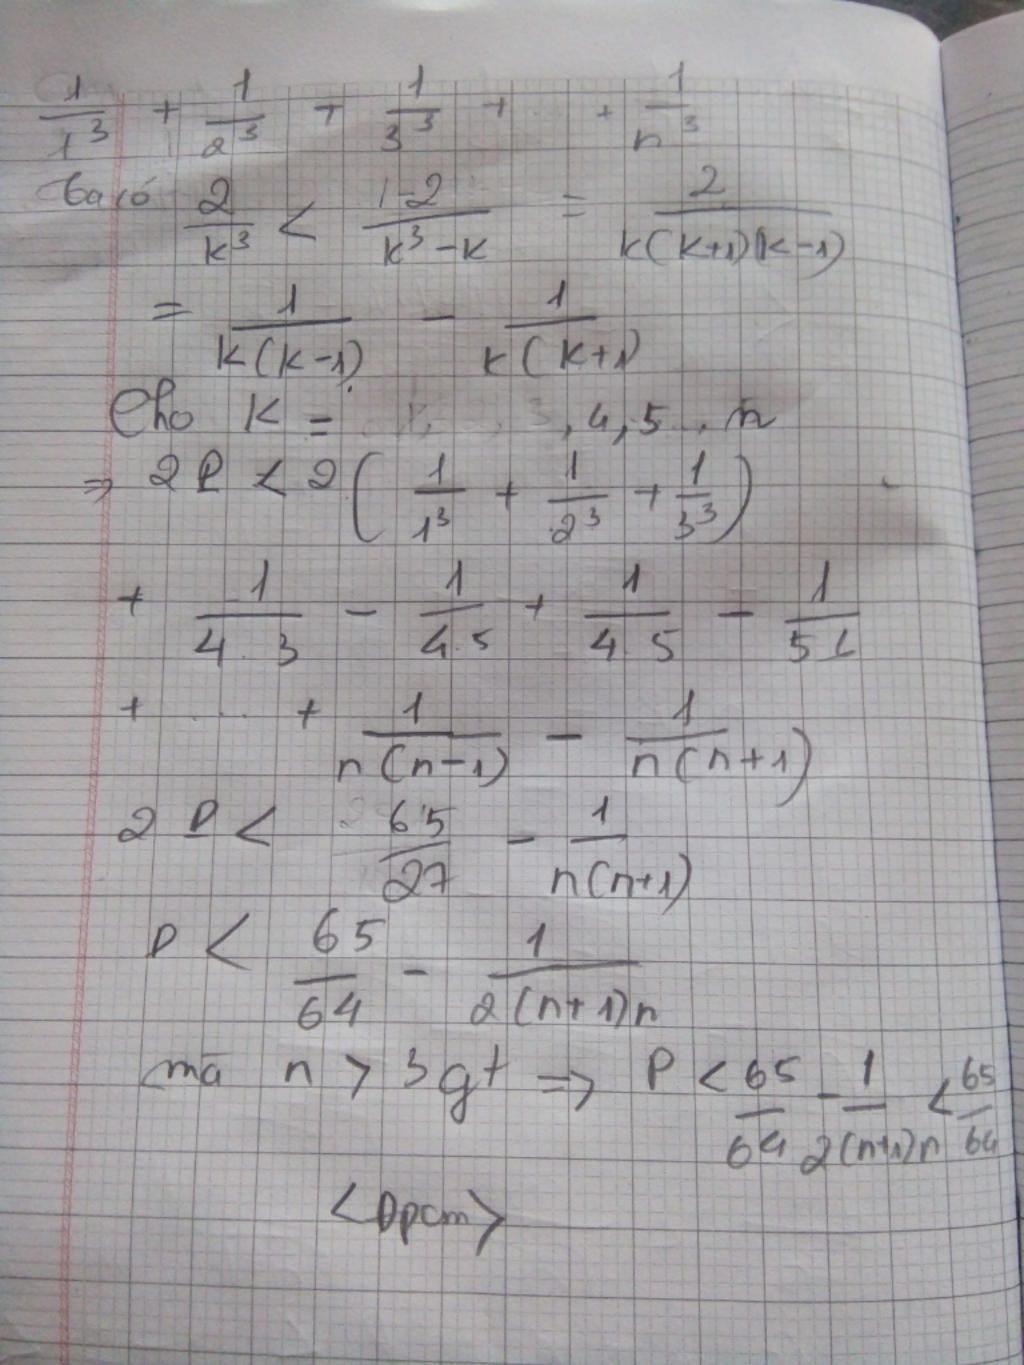 1/1³ + 1/2³ + 1/3³ + + 1/n³
Ta có 2/k³ < 2/k³-k = 2/k(k+1)(k-1)
= 1/k(k-1) - 1/k(k+1)
Cho K = 3, 4, 5 .. n
=> 2P < 2(1/1³ + 1/2³ + 1/3³)
+ 1/4.3 - 1/4.5 + 1/4.5 - 1/5
+ .... + 1/n(n-1) - 1/n(n+1)
2P < 65/27 - 1/n(n+1)
P < 65/64 - 1/2(n+1)n
mà n > 3 gt => P < 65/64 - 1/2(n+1)n < 65/64
<Đpcm>